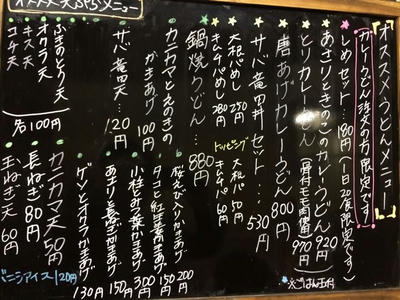 オススメうどんメニュー
カレーうどん注文の方限定で
しめセット…180円(一日20食限定です)
あさりときのこのカレーうどん 920円
唐あげカレーうどん(骨付モモ肉使用) 970円
800円
サバ竜田丼セット… 530円
大根めし 250円
キムチめし 280円
トッピング
大根 50円
キムチ 60円
鍋焼うどん… 880円
カニカマとえのきのかきあげ 100円
サバ竜田天… 120円
ぶなのとり天
オクラ天
キス天
コチ天
各100円
桜えびいりかきあげ 200円
タコと紅生姜かきあげ 150円
小柱みつ葉かきあげ 300円
あさりと長ねぎかきあげ 150円
ゲソとオクラかきあげ 130円
カニカマ天 50円
長ねぎ 80円
玉ねぎ天 60円
バニラアイス 120円
※ごはん付
オススメ天ぷらメニュー